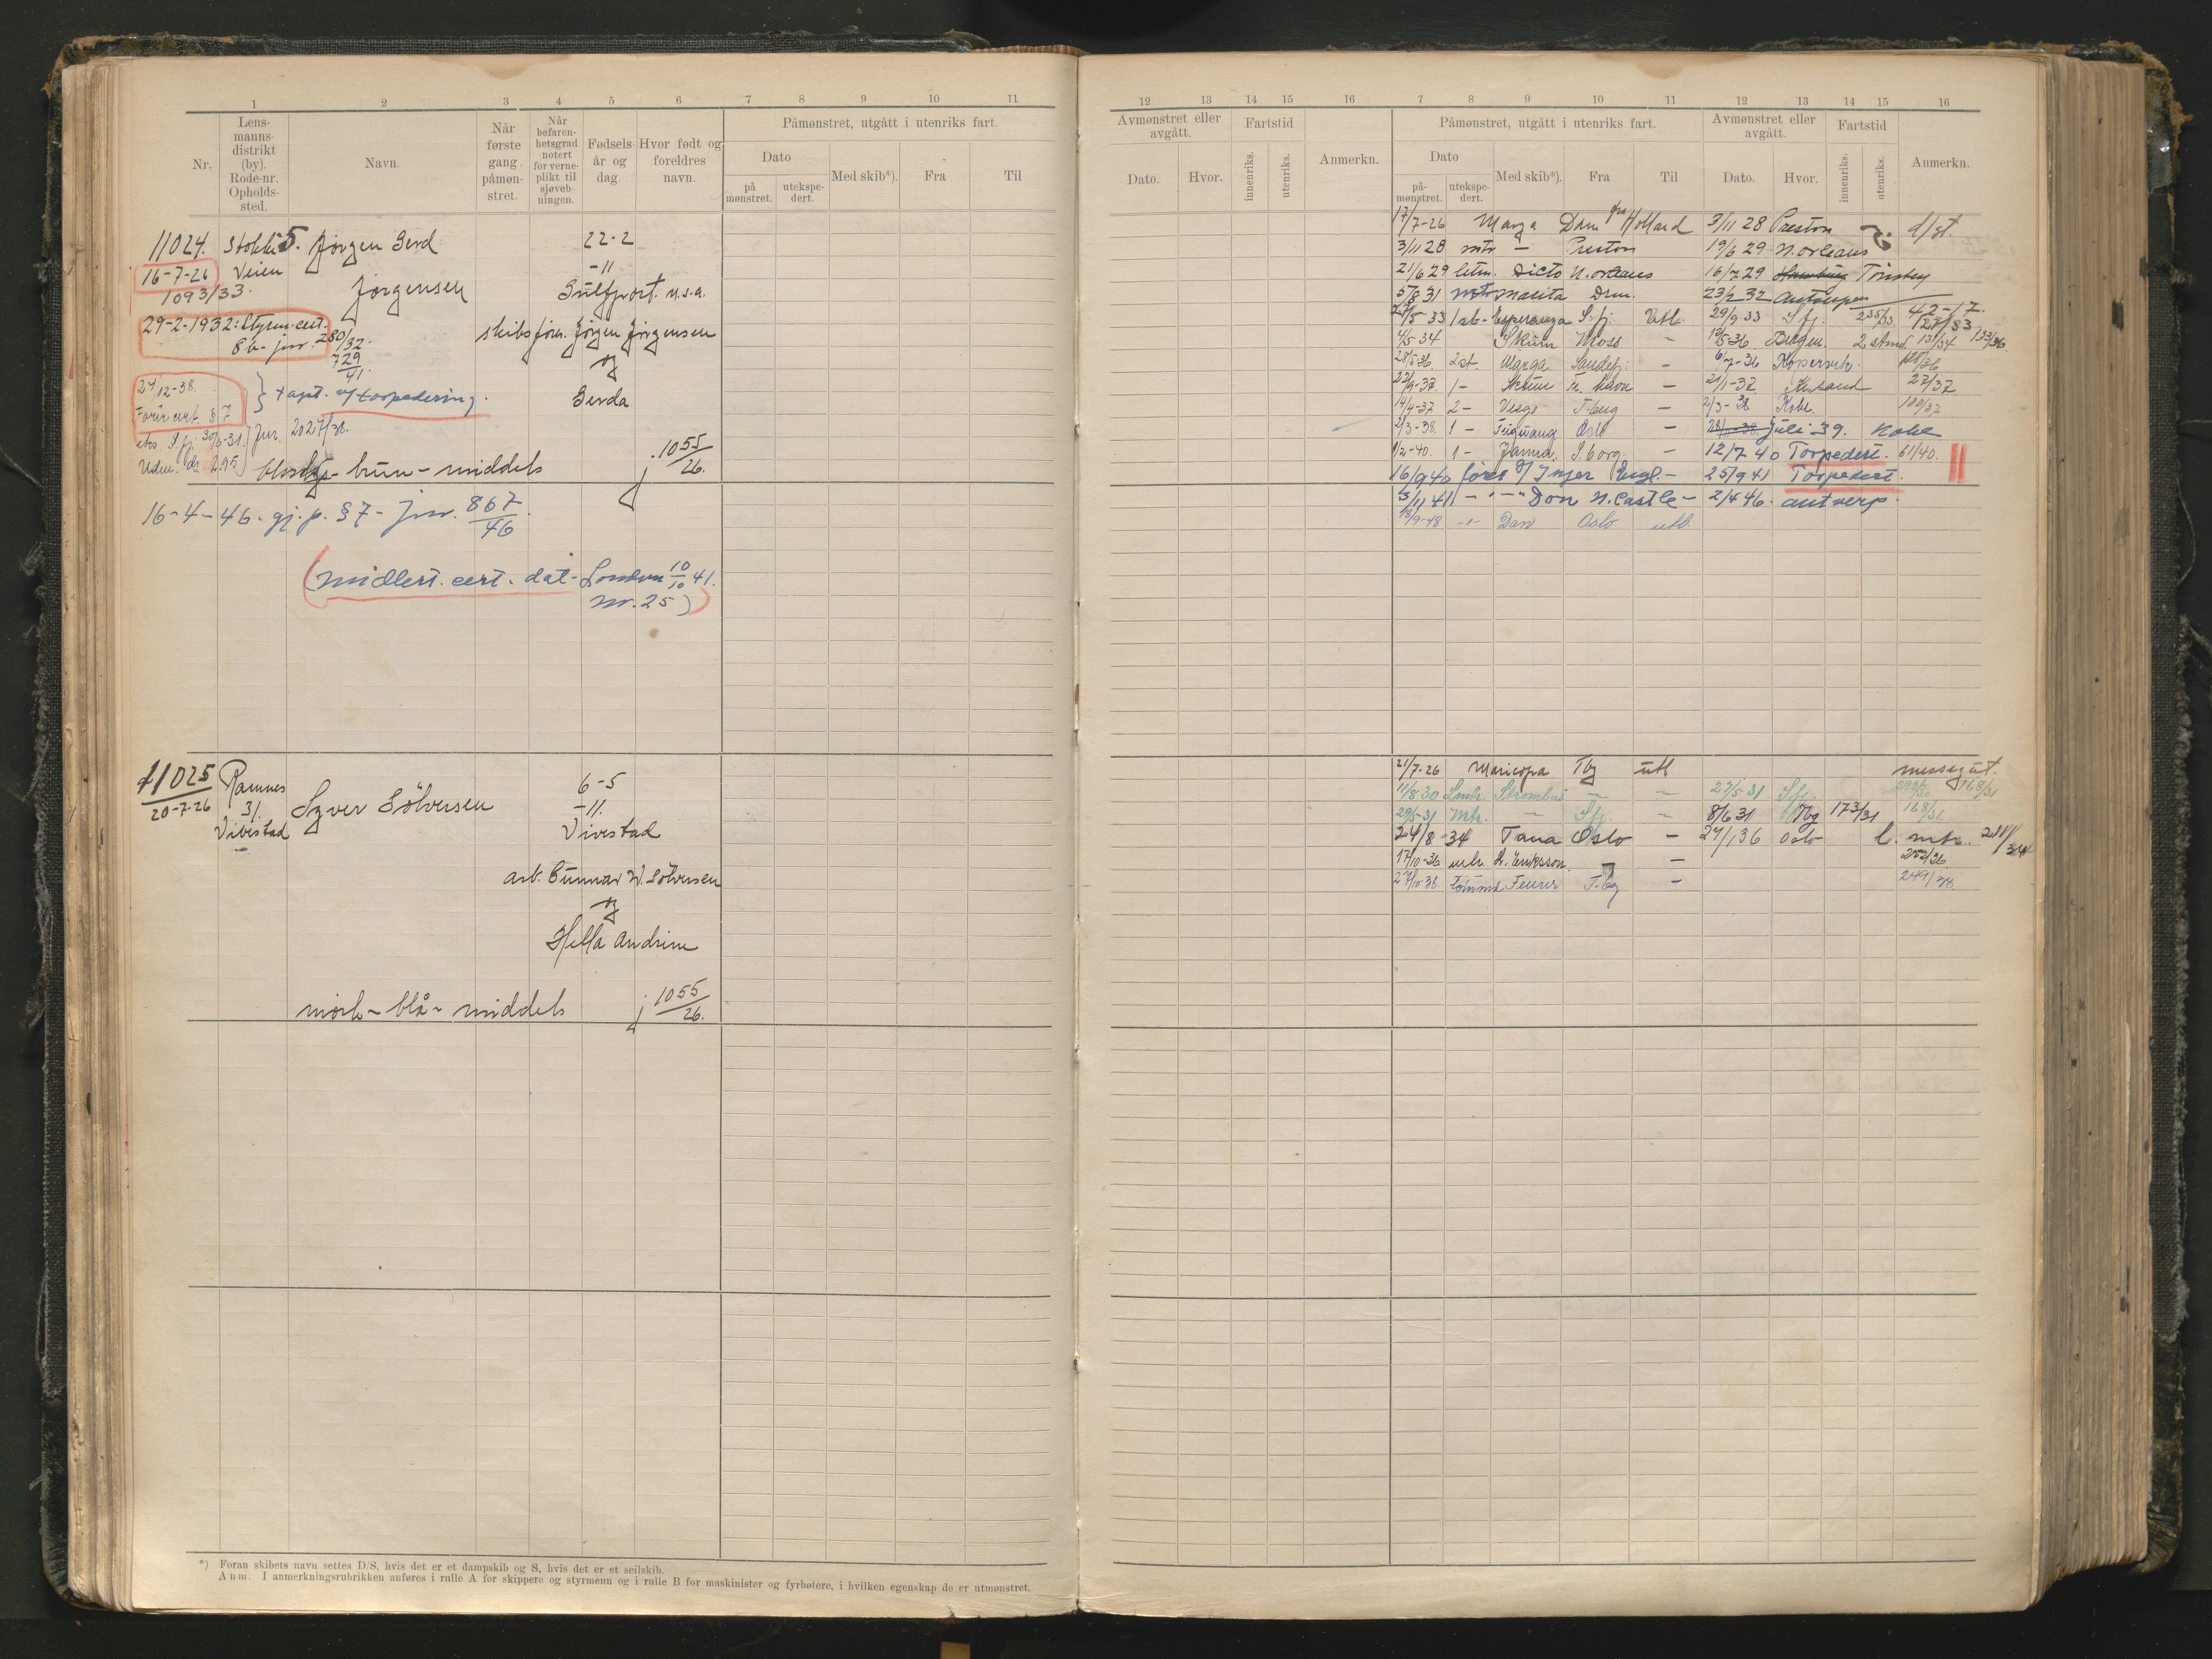 1 2 3 4 5 6 7 8 9 10 11
Nr.
Lens-
manns-
distrikt
(by).
Rode-nr.
Opholds-
sted.
Navn.
Når
første
gang
påmøn-
stret.
Når
befaren-
hetsgrad
notert
for verne-
plikt til
sjøveb-
ningen.
Fødsels-
år og
dag.
Hvor født og
foreldres
navn.
Påmønstret, utgått i utenriks fart.
Dato
på
mønstret.
utekspe-
dert.
Med skib*).
Fra
Til
11024. Stokke 5. Jørgen Gerd 22-2
16-7-26 Veien -11
1093/33. Jørgensen Gulfport. U.S.A.
29-2-1932: Styrm.cert. skibsfører. Jørgen Jørgensen
8b- jnr. 280/32.
729/41. og
27/12-38. } tapt. v/ torpedering. Gerda
Fører cert. § 7
S.fj. 30/6-31. } Jnr. 2027/38.
295 brun - middels j. 1055/26.
16-4-46. gj.p. § 7 - Jnr. 867/46.
(midlert. cert. dat. London 10/10 41.
nr. 25)
11025 Ramnes 6-5
20-7-26 31. Syver Sölversen -11.
Vivestad Vivestad
arb. Gunnar W. Sölversen
og
Hella Andrine
mörk - blå - middels j 1055/26.
*) Foran skibets navn settes D/S, hvis det er et dampskib og S, hvis det er et seilskib.
Anm. I anmerkningsrubrikken anføres i rulle A for skippere og styrmenn og i rulle B for maskinister og fyrbøtere, i hvilken egenskap de er utmønstret.
12 13 14 15 16 7 8 9 10 11 12 13 14 15 16
Avmønstret eller
avgått.
Dato.
Hvor.
Fartstid
innenriks.
utenriks.
Anmerkn.
Påmønstret, utgått i utenriks fart.
Dato
på-
mønstret.
utekspe-
dert.
Med skib*).
Fra
Til
Avmønstret eller
avgått.
Dato.
Hvor.
Fartstid
innenriks.
utenriks.
Anmerkn.
17/7-26 Marga Dram fra Holland 3/11 28 Preston
3/11 28 mtr - Preston 19/6 29 N.orleans
21/6 29 letm. Dicto N.orleans 16/7 29 Hamburg Tönsberg
5/8 31 mtr Masita Drm. 23/2 32 Antwerpen 42-17.
/5 33 1 st- Esperanza S.fj. Utl. 29/9 33 S.fj. 235/33. 127/33
4/5-34 Skum Moss - 19/5-36 Bergen. 2 stmd 131/34 133/36.
28/5-36. 2 st. Marga Sandefj: - 6/7-36 Kopervik. /36
22/9-37. 1 - Skum Fr. havn - 21/1-37. Kr.sand 27/37
14/4-37 2 - Vesgo T.berg - 2/3-38 Kobe. 100/37
2/3-38. 1 - Oslo - juli 39. Kobe
1/2-40. 1 - Janna. S.borg. - 12/7 40 Torpedert. 61/40.
16/9 40 fører S/ Inger Engl.- 25/9 41 Torpedert.
3/11 41 - " - Dan N.Castle - 2/4 46. Antverp.
18/9-48 -"- Dan Oslo utl
21/7-26 Maricopa Tbg utl messegut.
11/8 30 Lmtr. Strombus - - 27/5 31 S.fj. 168/31
29/5-31 Mtr. - S.fj. - 8/6 31 Tbg 173/31 168/31
24/8-34 Tana Oslo - 27/1 36 Oslo l. mtr. 211/34
17/10-36 mtr K. Eriksson. - 252/36
27/10-38. tömmrmd Feuris T.bg - 249/38.